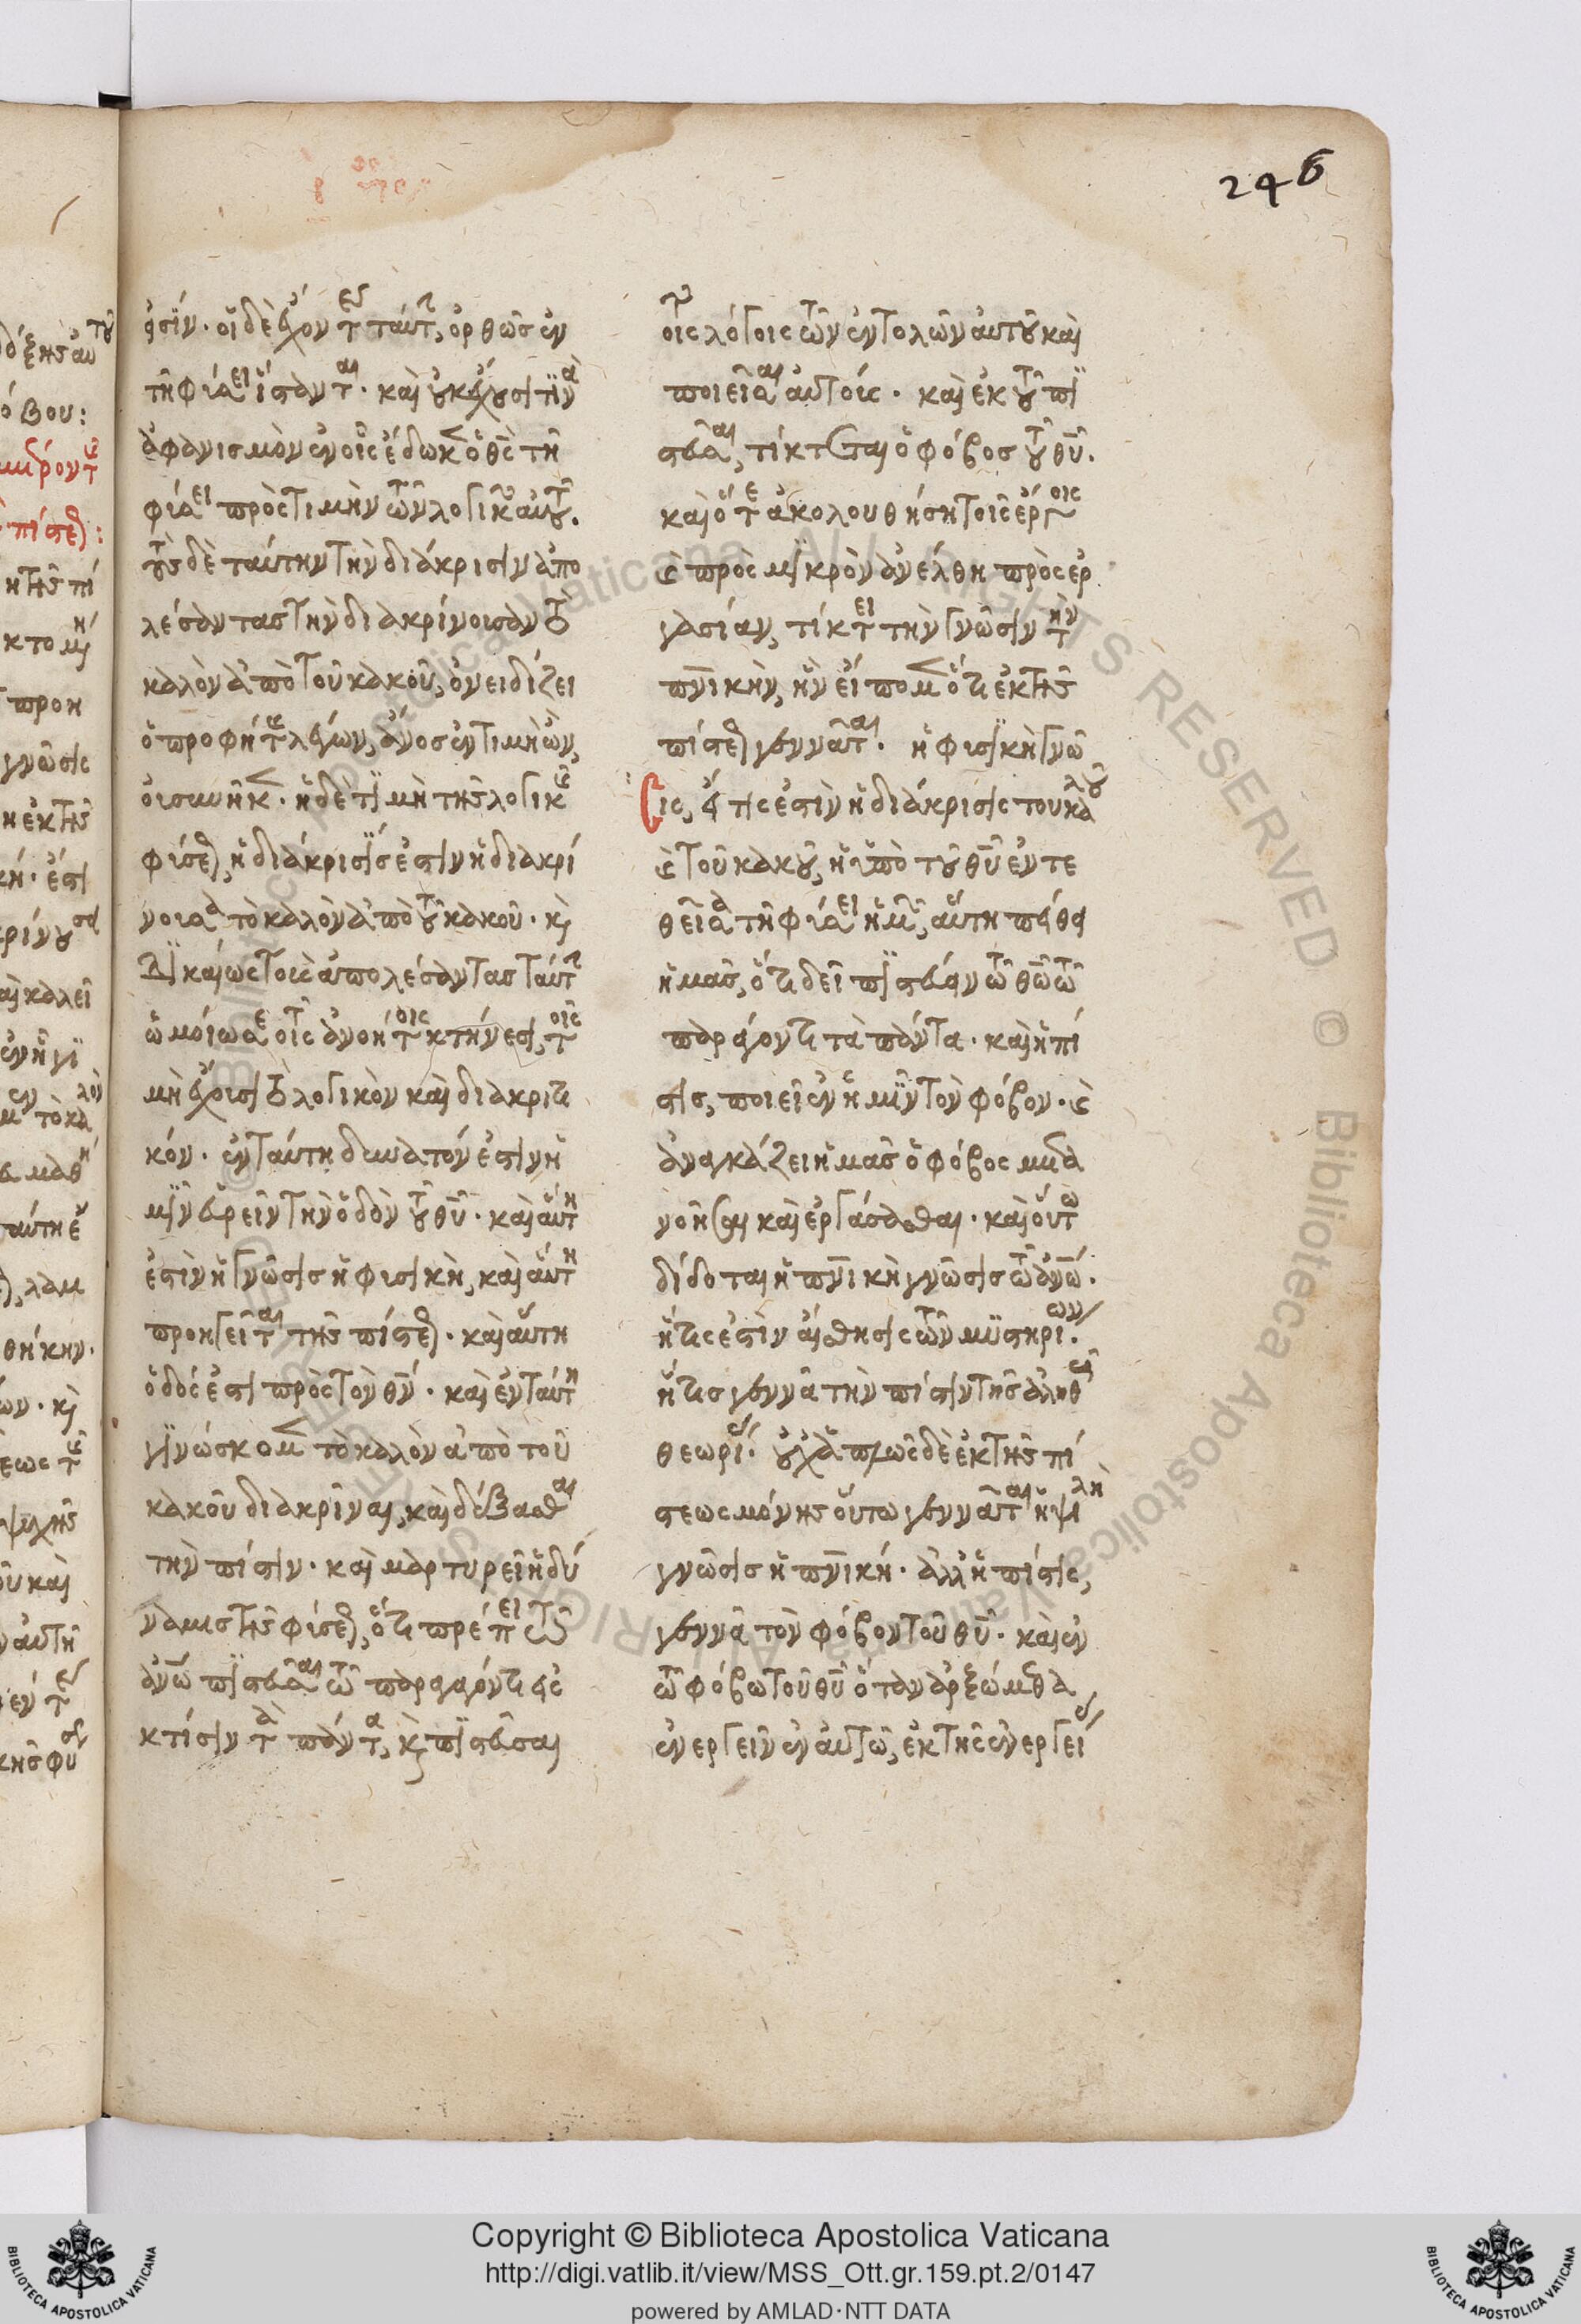 246
φσιν. οἱ δὲ ἔχοντες ταύτην, ὀρθῶς ἐν
τῆ φύσει ἵστανται. καὶ οὐκ ἔχουσί τινα
ἀφανισμὸν ἐν οἷς ἔδωκεν ὁ θς τῆ
φύσει πρὸς τιμὴν τῶν λογικῶν αὐτοῦ.
τοὺς δὲ ταύτην τὴν διάκρισιν ἀπο
λέσαντας τὴν διακρίνουσαν τὸ
καλὸν ἀπὸ τοῦ κακοῦ, ὀνειδίζει
ὁ προφήτης λέγων, ἄνος ἐν τιμῆ ὢν,
οὐ συνῆκεν. ἡ δὲ τιμὴ τῆς λογικῆς
φύσεως, ἡ διάκρισίς ἐστιν ἡ διακρί
νουσα τὸ καλὸν ἀπὸ τοῦ κακοῦ. καὶ
δικαίως τοὺς ἀπολέσαντας ταύτην
ὡμοίωσε τοῖς ἀνοήτοις κτήνεσι, τοῖς
μὴ ἔχουσι τὸ λογικὸν καὶ διακριτι
κόν. ἐν ταύτη δυνατόν ἐστιν ἡ
μῖν εὑρεῖν τὴν ὁδὸν τοῦ θυ. καὶ αὕτη
ἐστὶν ἡ γνῶσις ἡ φυσικὴ, καὶ αὕτη
προηγεῖται τῆς πίστεως. καὶ αὕτη
ὁδός ἐστι πρὸς τὸν θν. καὶ ἐν ταύτη
γινώσκομεν τὸ καλὸν ἀπὸ τοῦ
κακοῦ διακρῖναι, καὶ δέξασθαι
τὴν πίστιν. καὶ μαρτυρεῖ ἡ δύ
ναμις τῆς φύσεως, ὅτι πρέπει τῶ
ἀνω πιστεῦσαι τῶ παραγαγόντι εἰς
κτίσιν τὰ πάντα, καὶ πιστεῦσαι
τοῖς λόγοις τῶν ἐντολῶν αὐτοῦ καὶ
ποιεῖσαι αὐτούς. καὶ ἐκ τοῦ πι
στεῦσαι, τίκτεται ὁ φόβος τοῦ θυ.
καὶ ὅτε ἀκολουθήση τοῖς ἔργοις
καὶ πρὸς μικρὸν ἀνέλθη πρὸς ἐρ
γασίαν, τίκτει τὴν γνῶσιν τὴν
πνικὴν, ἣν εἴπομεν ὅτι ἐκ τῆς
πίστεως γεννᾶται. ἡ φυσικὴ γνῶ
σις, ἥτις ἐστὶν ἡ διάκρισις τοῦ καλοῦ
καὶ τοῦ κακοῦ, ἡ ὑπὸ τοῦ θυ ἐντε
θεῖσα τῆ φύσει ἡμῶν, αὕτη πείθει
ἡμᾶς, ὅτι δεῖ πιστεύειν τῶ θω τῶ
παραγαγόντι τὰ πάντα. καὶ ἡ πί
στις, ποιεῖ ἐν ἡμῖν τὸν φόβον. καὶ
ἀναγκάζει ἡμᾶς ὁ φόβος μετα
νοῆσαι καὶ ἐργάσασθαι. καὶ οὕτω
δίδοται ἡ πνικὴ γνῶσις τῶ ἀνω.
ἥτις ἐστὶν αἴσθησις τῶν μυστηρίων.
ἥτις γεννᾶ τὴν πίστιν τῆς ἀληθοῦς
θεωρίας. οὐχ ἁπλῶς δὲ ἐκ τῆς πί
στεως μόνης οὕτω γεννᾶται ἡ ψιλὴ
γνῶσις ἡ πνική. ἀλλ' ἡ πίστις,
γεννᾶ τὸν φόβον τοῦ θυ. καὶ ἐν
τῶ φόβω τοῦ θυ ὅταν ἀρξώμεθα
ἐνεργεῖν ἐν αὐτῶ, ἐκ τῆς ἐνεργείας
Copyright © Biblioteca Apostolica Vaticana
http://digi.vatlib.it/view/MSS_Ott.gr.159.pt.2/0147
powered by AMLAD·NTT DATA